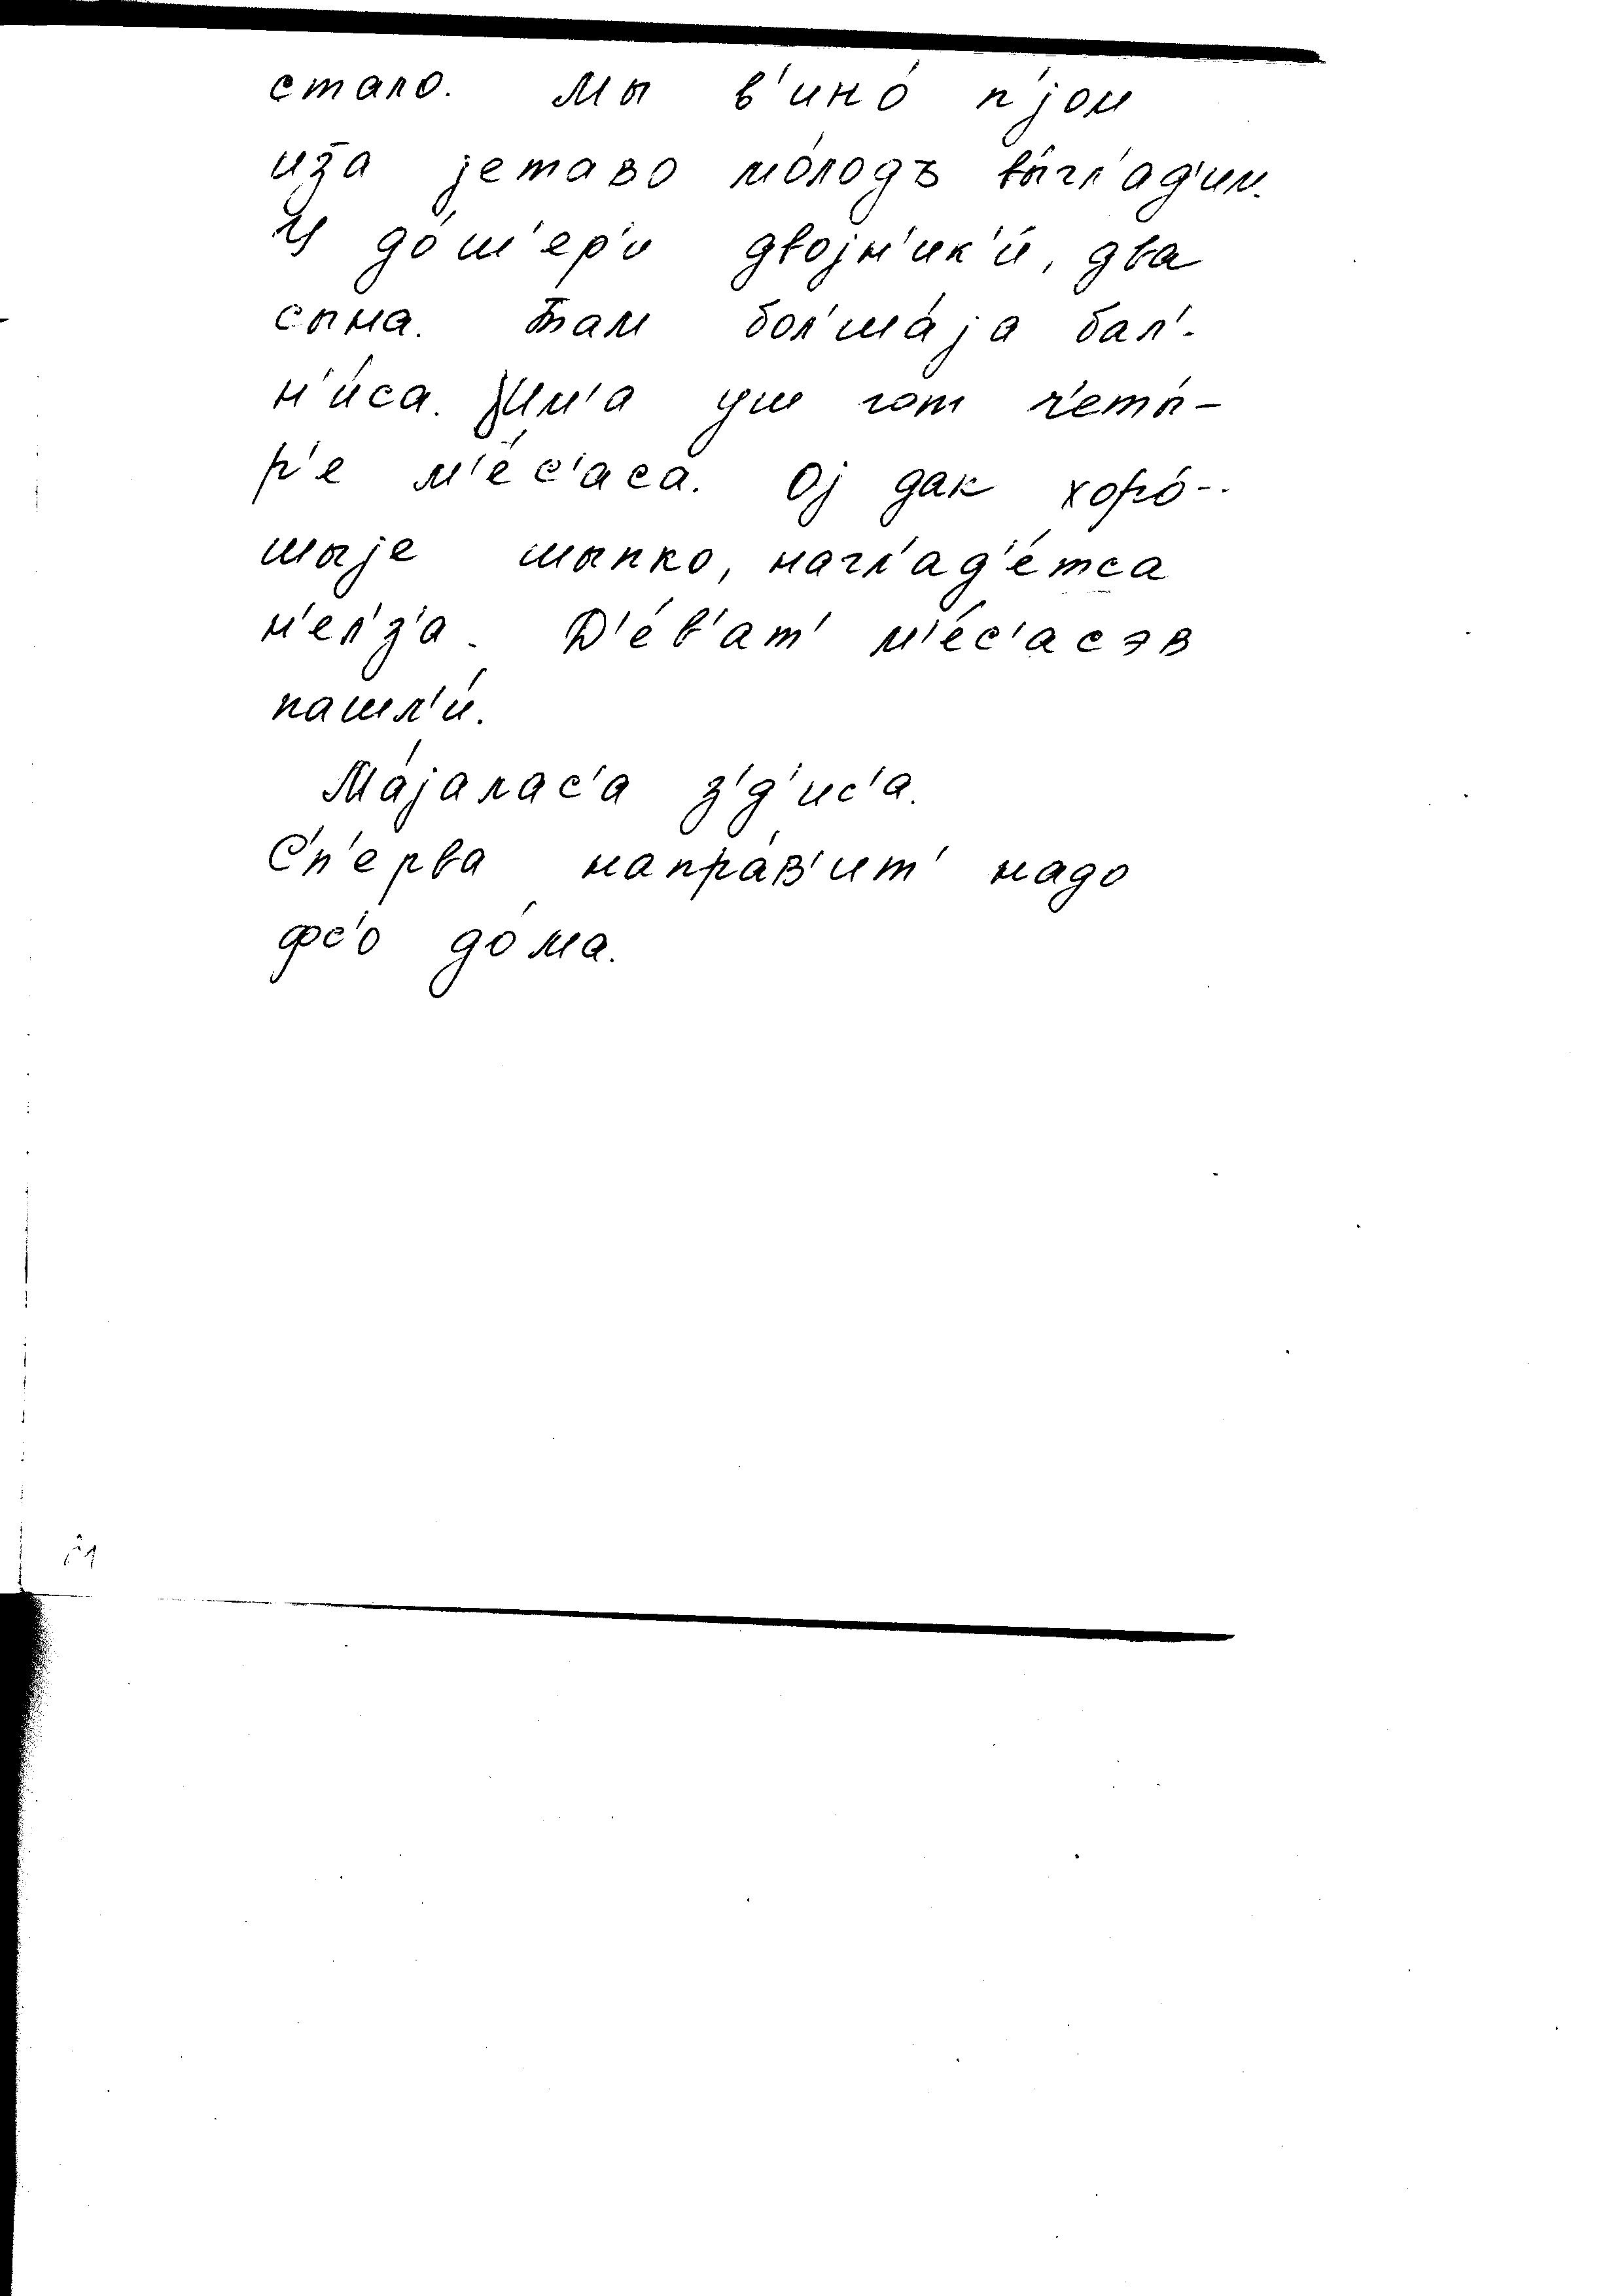 стало. Мы в'ино́ п'jом
иза jетаво мо́лодъ вы́гл'ад'им.
И до́ш'ер'и двоjн'ик'и́, два
сына. Там бол'ша́jа бал'-
н'и́са. Им'а уш гот ч'еты́-
р'е м'е́с'аса. Оj дак хоро́-
шыjе шыпко, нагл'ад'е́тса
н'ел'з'а. Д'е́в'ат' м'е́с'асэв
пашл'и́.
Ма́jалас'а з'д'ис'а.
С'п'ерва напра́в'ит' надо
фс'о до́ма.